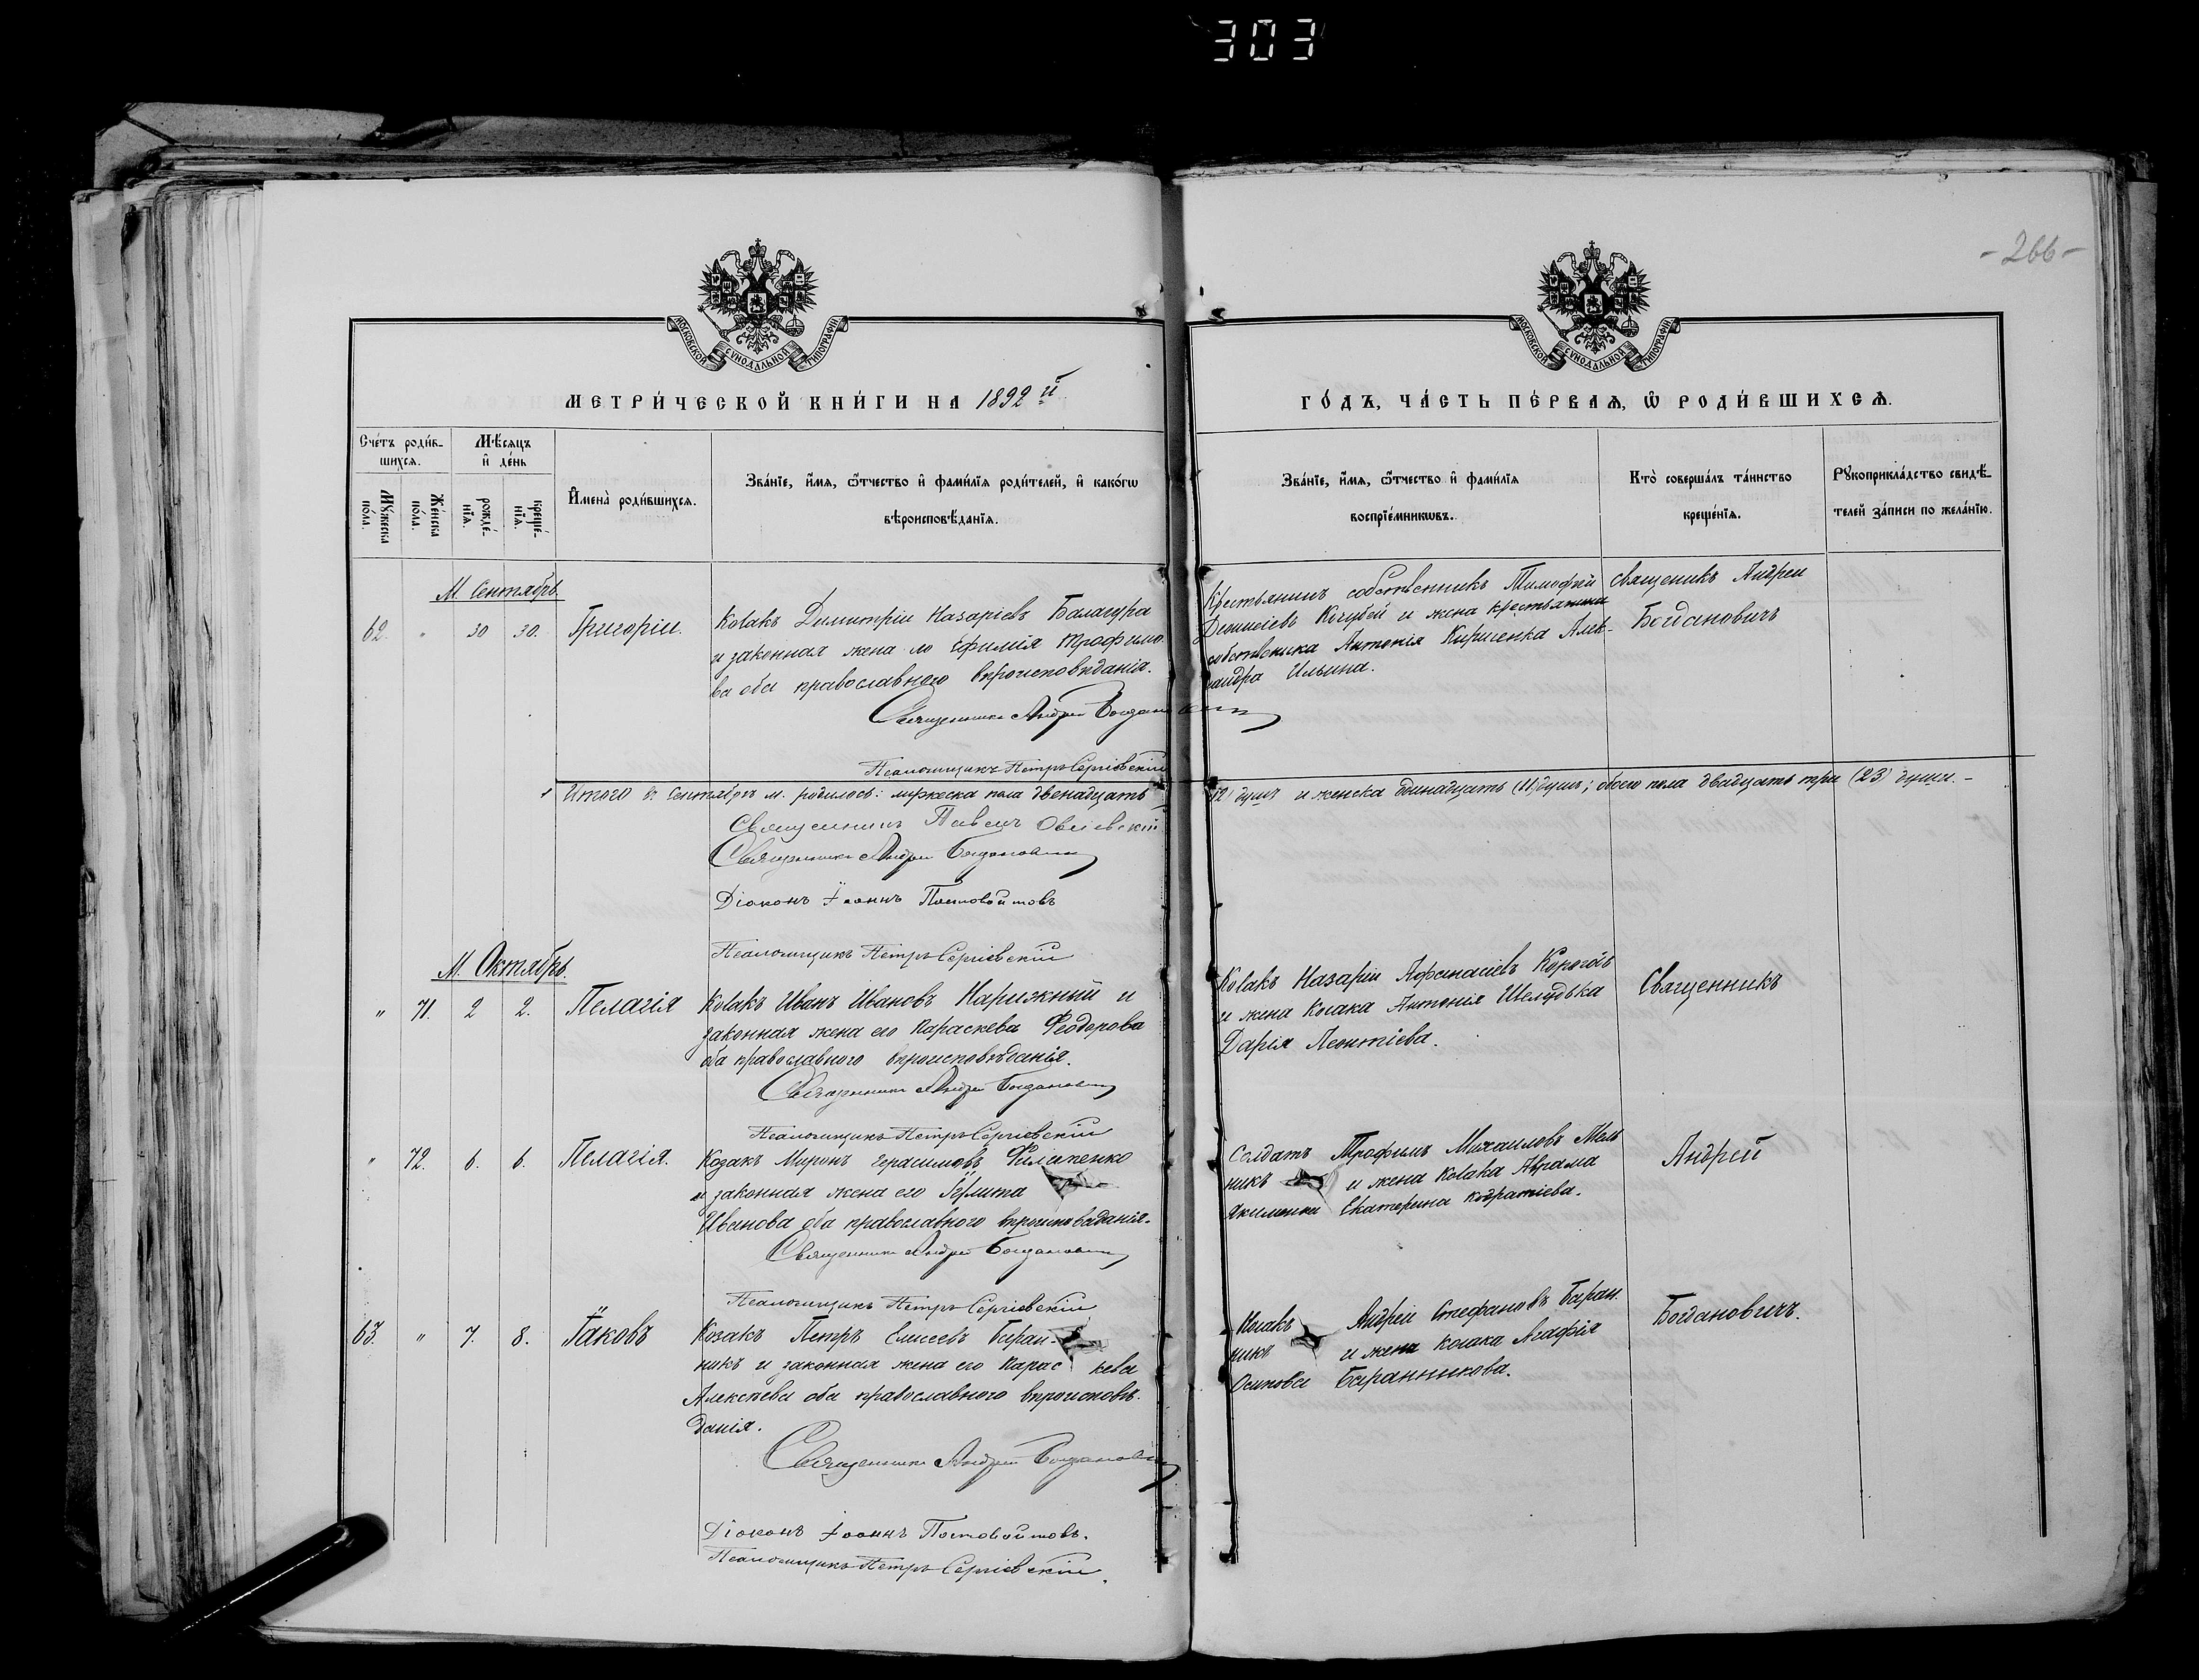 303
-266-
МОСКОВСКОЙ СѴНОДАЛЬНОЙ ТИПОГРАФІИ
МОСКОВСКОЙ СѴНОДАЛЬНОЙ ТИПОГРАФІИ
МЕТРИ́ЧЕСКОЙ КНИ́ГИ НА 1892й
ГО́ДЪ, ЧА́СТЬ ПЕ́РВАѦ, Ѿ РОДИ́ВШИХСѦ.
Сче́тъ роди́в-
шихсѧ.
Мѣ́сѧцъ
и҆ де́нь
Мꙋ́жеска
по́ла.
Же́нска
по́ла.
рожде́-
нїѧ.
креще́-
нїѧ.
И҆мена̀ роди́вшихсѧ.
Зва́нїе, и҆́мѧ, ѻ҆́тчество и҆ фами́лїѧ роди́телей, и҆ како́гѡ
вѣроисповѣ́данїѧ.
Зва́нїе, и҆́мѧ, ѻ҆́тчество и҆ фами́лїѧ
воспрїе́мникѡвъ.
Кто̀ соверша́лъ та́инство
креще́нїѧ.
Рꙋкоприкла́дство свидѣ́-
телей за́писи по жела́нїю.
М. Сентябрь
62. " 30 30. Григоріи.
Козакъ Димитріи Назаріевъ Балагура
и законная жена его Ефимія Трофимо
ва оба православного вѣроисповѣданія.
Священникъ Андрей Богданович
Псаломщикъ Петръ Сергіевскій
Крестьянинъ собственникъ Тимофей
Діонисіевъ Кочубей и жена крестьянина
собственика Антонія Кириенка Алек-
сандра Ильина.
Священикъ Андреи
Богдановичъ
Итого въ Сентябрѣ м. родилось: мужеска пола двенадцать
(12) душъ и женска одинадцать (11) душъ; обоего пола двадцать три (23) души.-
Священникъ Павелъ
Священникъ Андрей Богданович
Діаконъ Іоаннъ Постовойтовъ
Псаломщикъ Петръ Сергіевскій
М. Октябрь.
" 71. 2 2. Пелагія
Козакъ Иванъ Ивановъ Нарижный и
законная жена его Параскева Феодорова
оба православного вѣроисповѣданія.
Священникъ Андрей Богданович
Псаломщикъ Петръ Сергіевскій
Козакъ Назаріи Афанасіевъ
и жена Козака Антонія Шелудька
Дарія Леонтіева.
Священникъ
" 72. 6. 6. Пелагія.
Козакъ Миронъ Герасимовъ Филипенко
и законная жена его
Иванова оба православного вѣроисповѣданія.
Священникъ Андрей Богданович
Псаломщикъ Петръ Сергіевскій
Солдатъ Трофимъ Михаиловъ Мель
никъ и жена Козака Аврама
Якименки Екатерина Кодратіева.
Андрей
63. " 7. 8. Іаковъ
Козакъ Петръ Елисеевъ Баран-
никъ и законная жена его Парас кева
Алексѣева оба православного вѣроисповѣ-
данія.
Священникъ Андрей Богданович
Діаконъ Іоаннъ Постовойтовъ.
Псаломщикъ Петръ Сергіевскій.
Козакъ Андреи Стефановъ Баран
никъ и жена козака Агафія
Осипова Баранникова.
Богдановичъ.